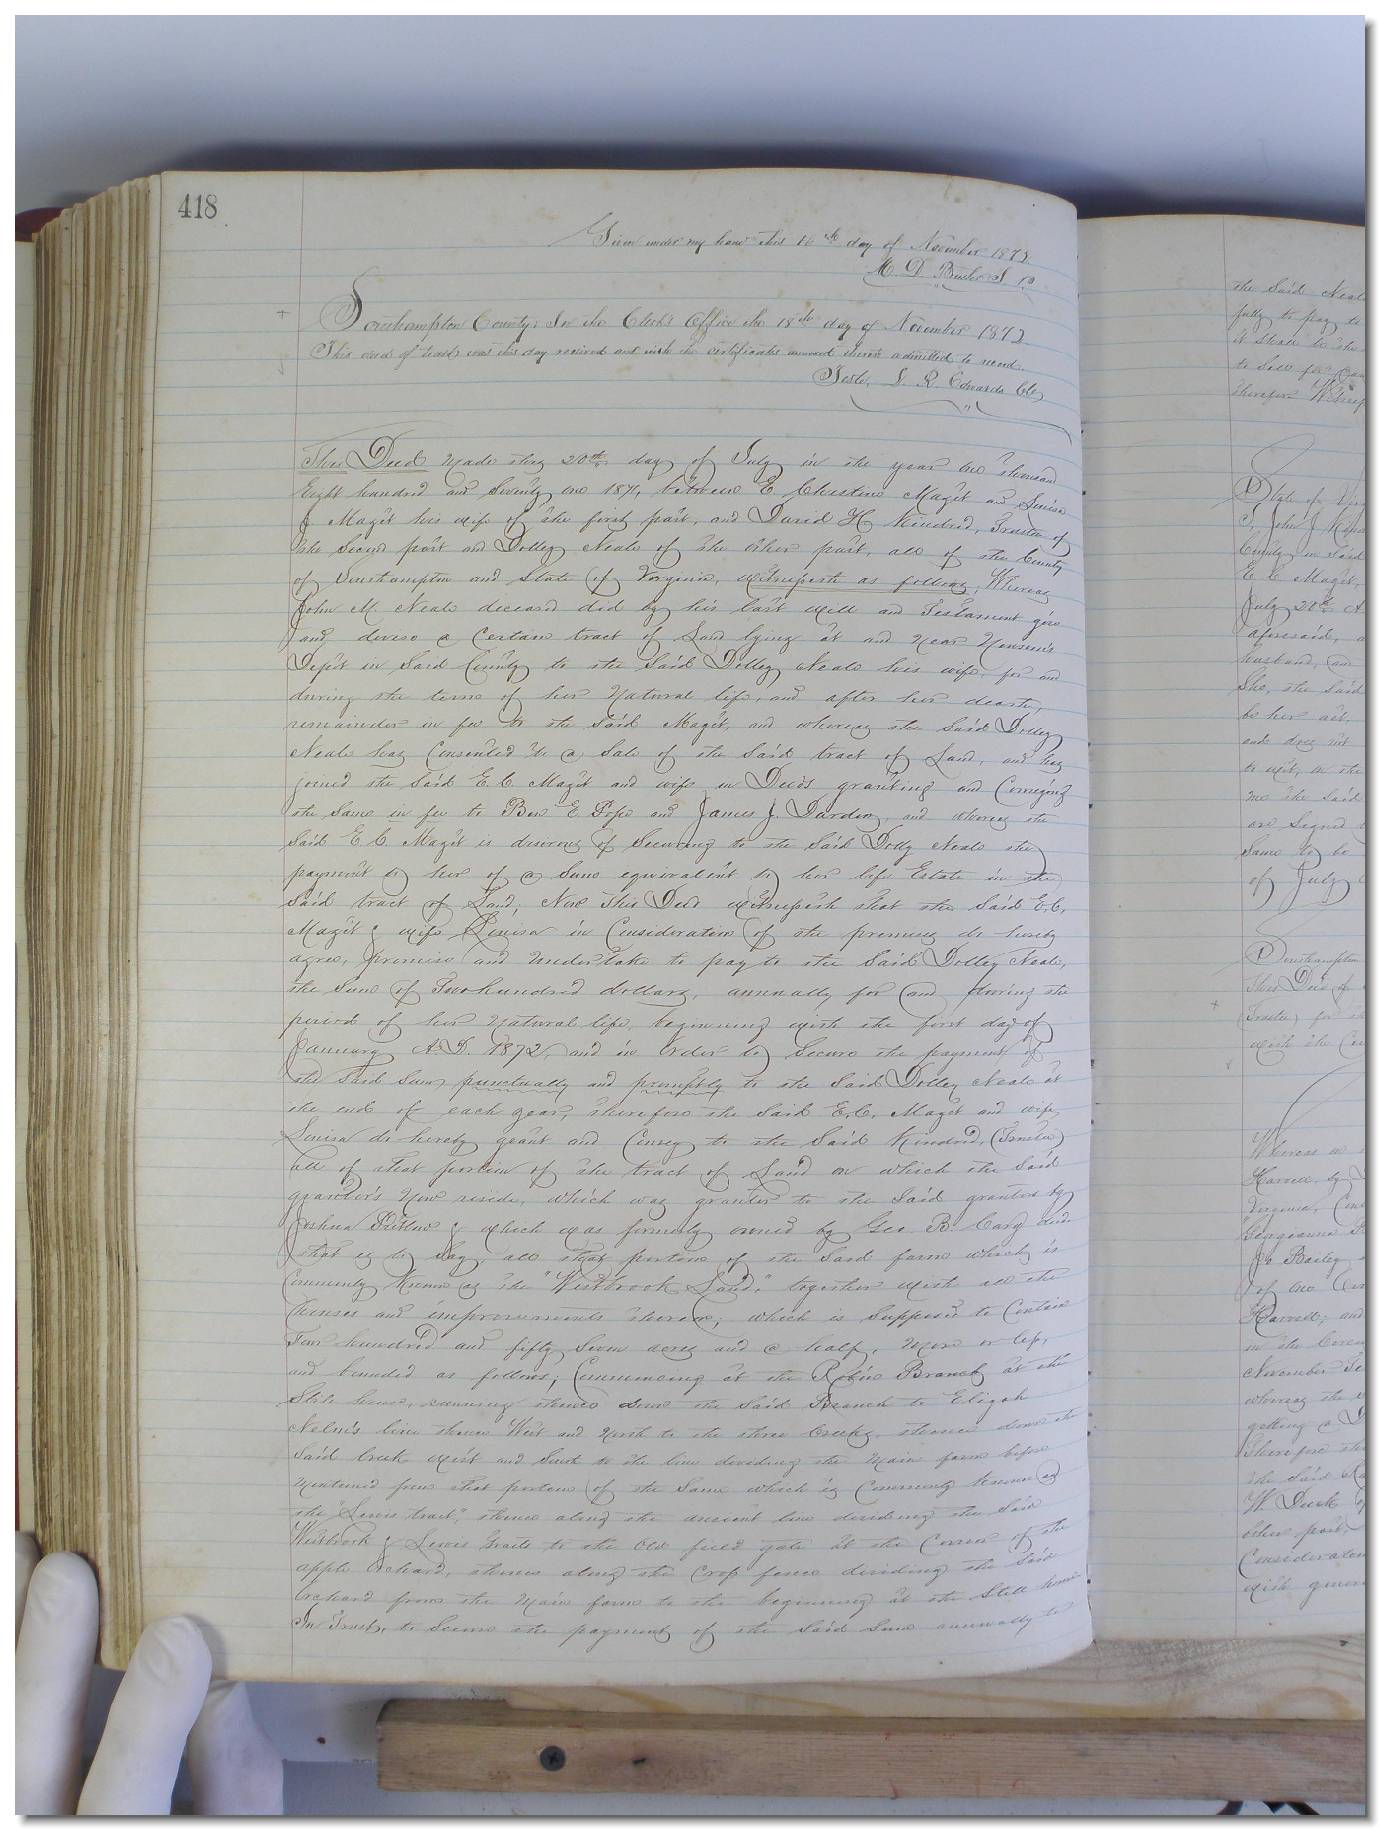 418
Given under my hand this 16th day of November 1872.
M. D. J. P.
Southampton County; In the Clerk's Office the 18th day of November 1872
This deed of trust was this day received and with the certificate annexed thereto admitted to record.
Teste, L. R. Edwards Clk
This Deed Made this 20th day of July in the year One thousand
Eight hundred and Seventy one 1871, between E Christine Maget and Louisa
J Maget his wife of the first part, and David H Kindred, Trustee of
the Second part and Dolley Neale of the other part, all of the County
of Southampton and State of Virginia, Witnesseth as follows, Whereas
John M Neale deceased did by his last will and Testament give
and devise a Certain tract of Land lying at and Near Newsom's
Depot in Said County to the Said Dolley Neale his wife, for and
during the term of her Natural life, and after her death,
remainder in fee to the Said Maget, and whereas the Said Dolley
Neale has Consented to a Sale of the Said tract of Land, and has
joined the Said E.C. Maget and wife in Deeds granting and Conveying
the Same in fee to Ben E Pope and James J. Darden, and whereas the
Said E C. Maget is desirous of Securing to the Said Dolly Neale the
payment to her of a Sum equivalent to her life Estate in the
Said tract of Land; Now This Deed Witnesseth that the Said E.C.
Maget & wife Louisa in Consideration of the premises do hereby
agree, promise and undertake to pay to the Said Dolley Neale,
the Sum of Two hundred dollars, annually for and during the
period of her Natural life, beginning with the first day of
January A.D. 1872, and in Order to Secure the payment of
the Said Sum punctually and promptly to the Said Dolley Neale at
the end of each year, therefore the Said E.C. Maget and wife
Louisa do hereby grant and Convey to the Said Kindred, (Trustee)
all of that portion of the tract of Land on which the Said
grantor's Now reside, which was granted to the Said grantor by
Joshua Pretlow & which was formerly owned by Geo. B. Cary decd.
that is to Say, all that portion of the Said farm which is
Commonly Known as the "Westbrook Land," together with all the
houses and improvements thereon, which is Supposed to Contain
Four hundred and fifty Seven acres and a half, More or less,
and bounded as follows; Commencing at the Branch at the
Still house, running thence down the Said Branch to Elijah
Nelm's line thence West and North to the three Creeks, thence down the
Said Creek West and South to the line dividing the Main farm before
Mentioned from that portion of the Same which is Commonly Known as
the "Lewis tract," thence along the ancient line dividing the Said
Westbrook & Lewis tracts to the Old field gate at the Corner of the
apple Orchard, thence along the Crop fence dividing the Said
Orchard from the Main farm to the beginning at the Still house
In Trust, to Secure the payment of the Said Sum annually to
the Said Neale
fully to pay to
it Shall be the
to Sell for
therefor. Witness
State of
I, John J
County in Said
E. C. Maget,
July 20th A
aforesaid, a
husband, and
She, the Said
be her act,
and does not
to wit, on the
me the Said
are Signed
Same to be
of July
Southampton
This Deed of
Trustee) for
with the
Whereas in
by
Virginia,
Georgianna
Bailey
of One
and
in the
November
whereas the
getting a
Therefore
the Said
W. Duck
other part,
Consideration
with general